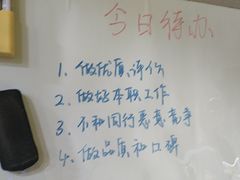 今日待办
1. 做优质评价
2. 做好本职工作
3. 不和同行恶意竞争
4. 做品质和口碑